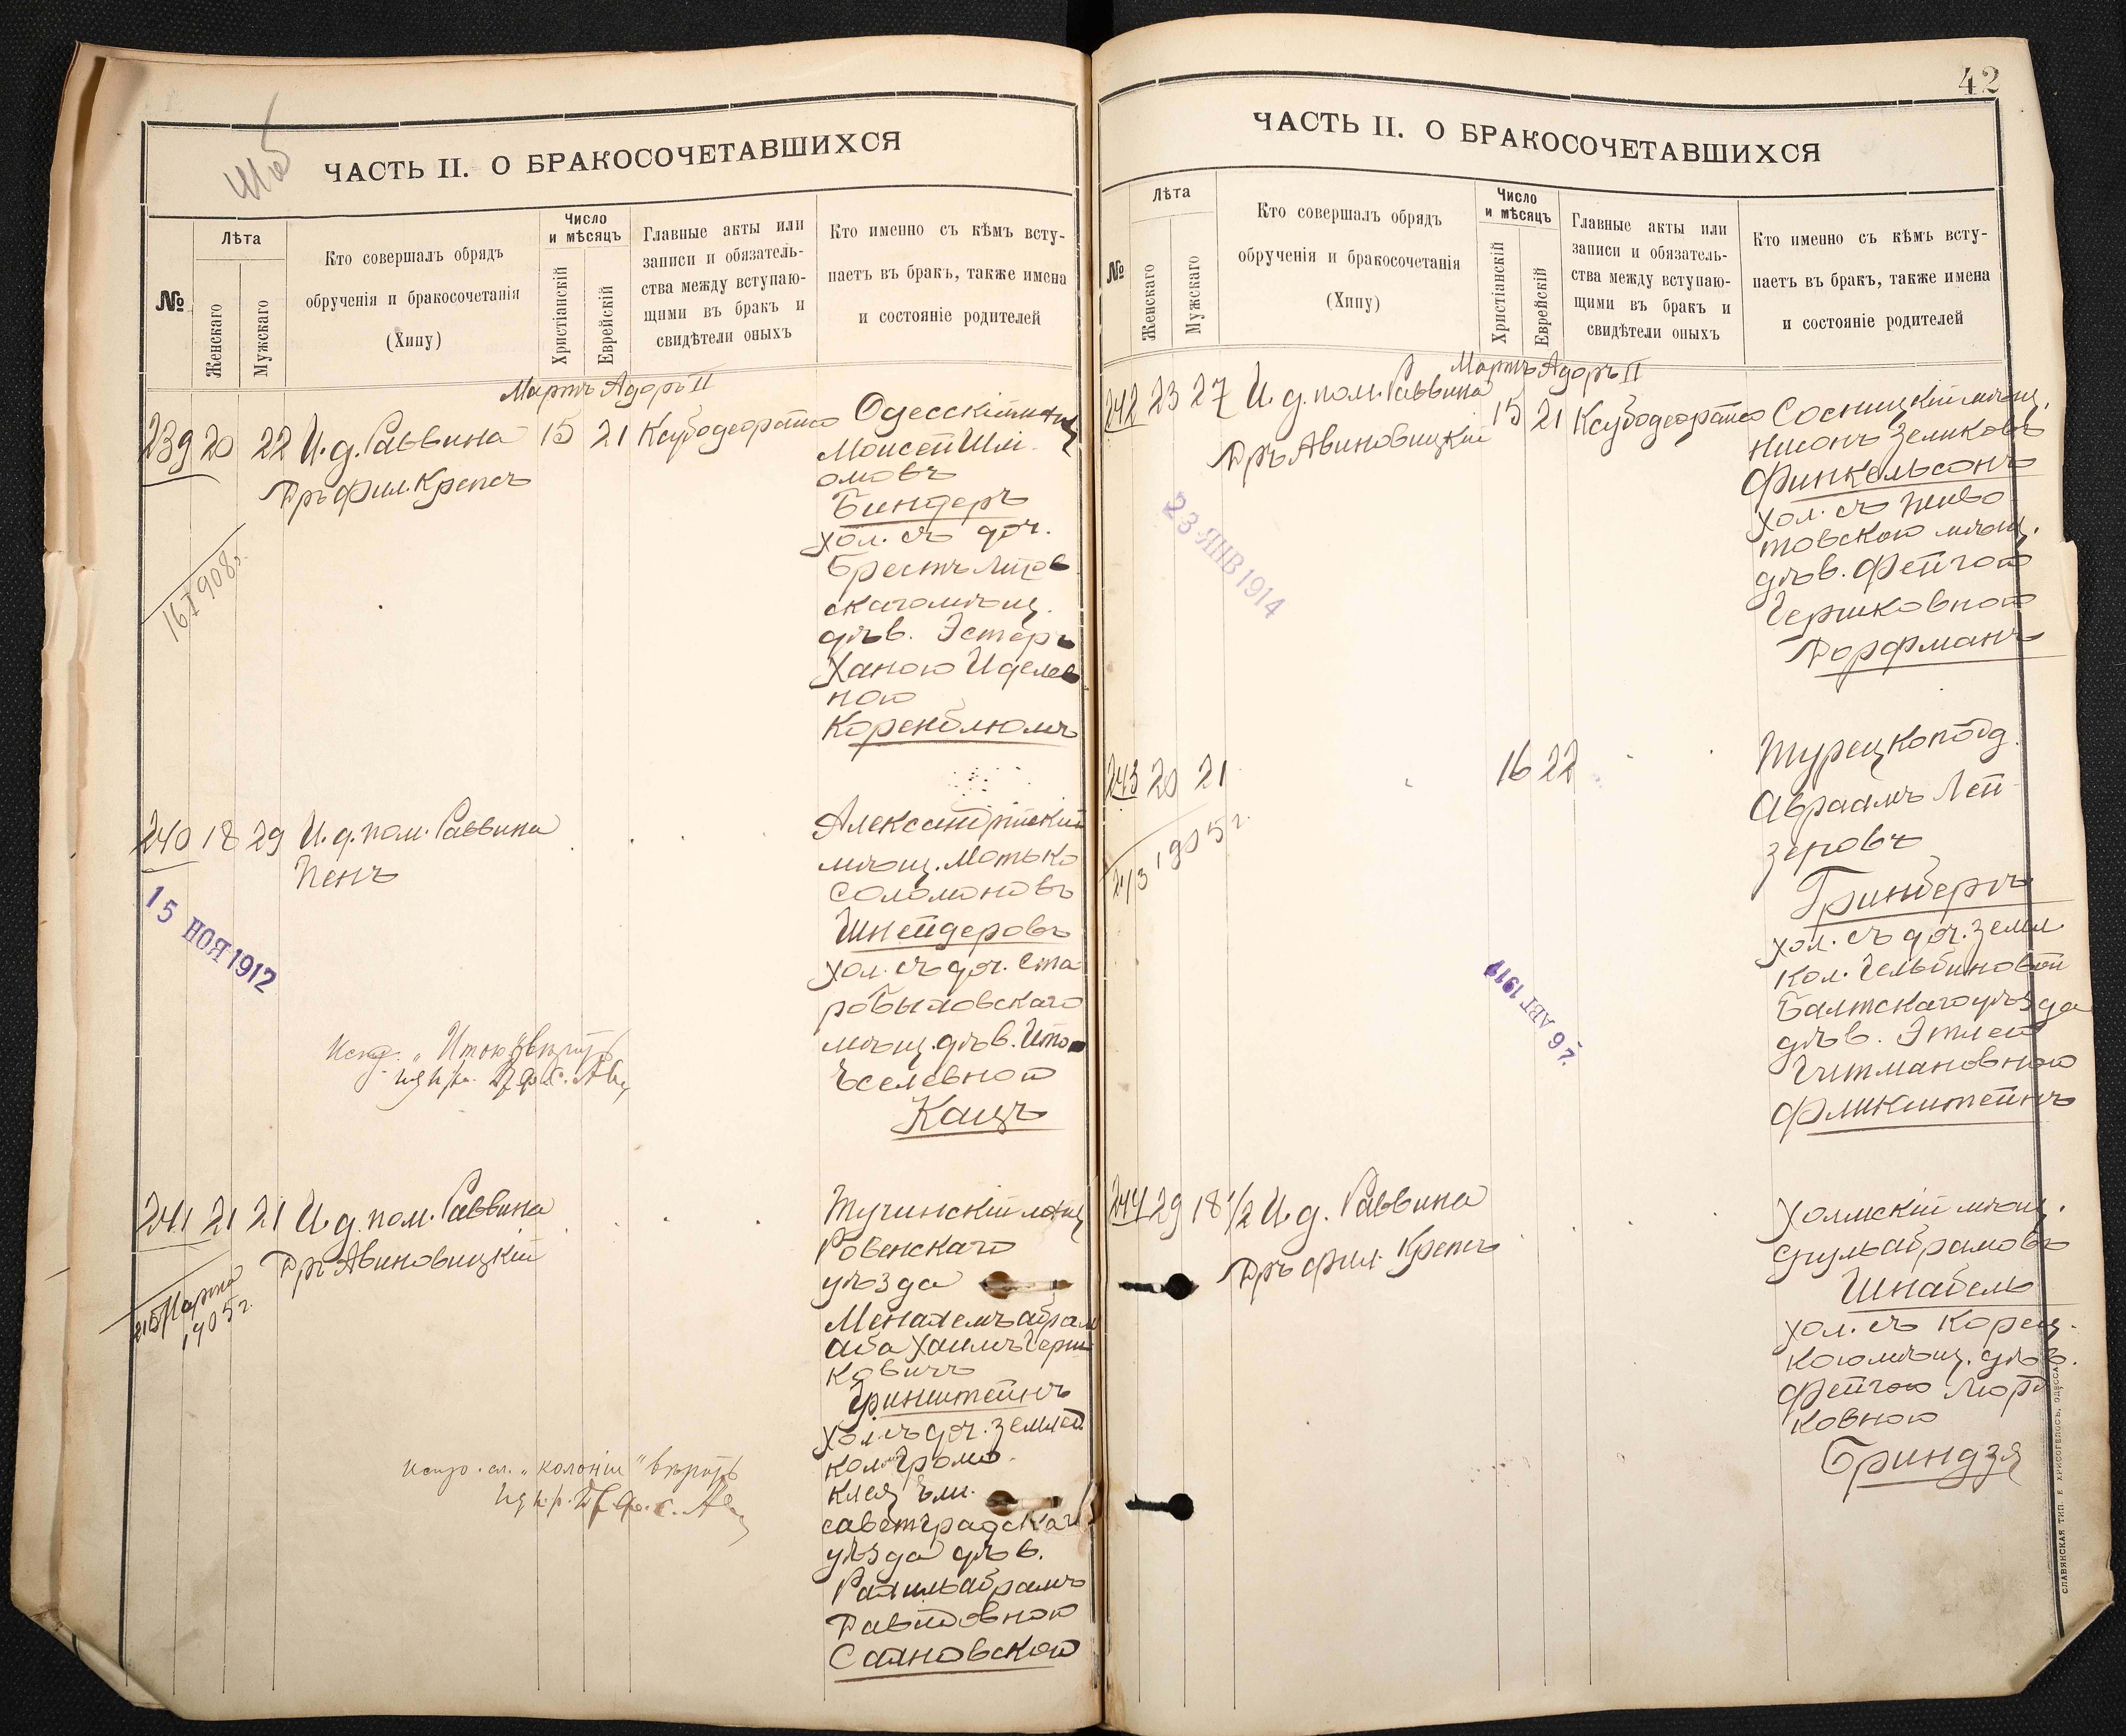 Шаб
ЧАСТЬ II. О БРАКОСОЧЕТАВШИХСЯ
№
Лѣта
Женскаго
Мужскаго
Кто совершалъ обрядъ
обрученія и бракосочетанія
(Хипу)
Число
и мѣсяцъ
Христіанскій
Еврейскій
Главные акты или
записи и обязатель-
ства между вступаю-
щими въ бракъ и
свидѣтели оныхъ
Кто именно съ кѣмъ всту-
паетъ въ бракъ, также имена
и состояніе родителей
Мартъ Адоръ II
239 20 22 И. д. Раввина 15 21
Дръ фил. Крепсъ
Одесскій мѣщ
Моисей Шлі-
омовъ
Биндеръ
хол. съ доч.
Брестъ Литов
скаго мѣщ.
дѣв. Эстеръ
Ханою Иделев
ною
Коренблюмъ
16 I 908 г.
240 18 29 И. д. пом. Раввина
Пенъ
15 НОЯ 1912
Александрійскій
мѣщ. Мотько
Соломоновъ
Шнейдеровъ
хол. съ доч. Ста
робыховскаго
мѣщ. дѣв. Ито
Ѣселевной
Кацъ
241 21 21 И. д. пом. Раввина
Дръ Авиновицкій
Марта
1905 г.
Тучинскій мѣщ
Ровенскаго
уѣзда
Менахемъ абрам
аба Хаимъ Герш
ковичъ
Гринштейнъ
хол. съ доч. землед
кол. Громо
клея Ели
саветградскаго
уѣзда дѣв.
Рахиль абрамъ
Давидовною
Сахновской
испр. сл. "колоніи" вѣрить
42
ЧАСТЬ II. О БРАКОСОЧЕТАВШИХСЯ
№
Лѣта
Женскаго
Мужскаго
Кто совершалъ обрядъ
обрученія и бракосочетанія
(Хипу)
Число
и мѣсяцъ
Христіанскій
Еврейскій
Главные акты или
записи и обязатель-
ства между вступаю-
щими въ бракъ и
свидѣтели оныхъ
Кто именно съ кѣмъ всту-
паетъ въ бракъ, также имена
и состояніе родителей
Мартъ Адоръ II
242 23 27 И. д. пом. Раввина 15 21
Дръ Авиновицкій
23 ЯНВ 1914
Сосницкій мѣщ.
Нисонъ Зеликовъ
Финкельсонъ
хол. съ Живо
товскою мѣщ.
дѣв. Фейгою
Гершковною
Дорфманъ
243 20 21 16 22
1905 г.
Турецкопод.
Авраамъ Лей
зеровъ
Гринбергъ
хол. съ доч. земл
кол. Гельбиновой
Балтскаго уѣзда
дѣв. Этлею
Гитмановною
Фликштейнъ
26 АВГ 191
244 29 18 1/2 И. д. Раввина
Дръ фил. Крепсъ
Холмскій мѣщ.
Сруль абрамовъ
Шнабель
хол. съ Корец-
кою мѣщ. дѣв.
Фейгою Морд
ковною
Бриндзя
СЛАВЯНСКАЯ ТИП. Е. ХРИСОГЕЛОСЪ, ОДЕССА